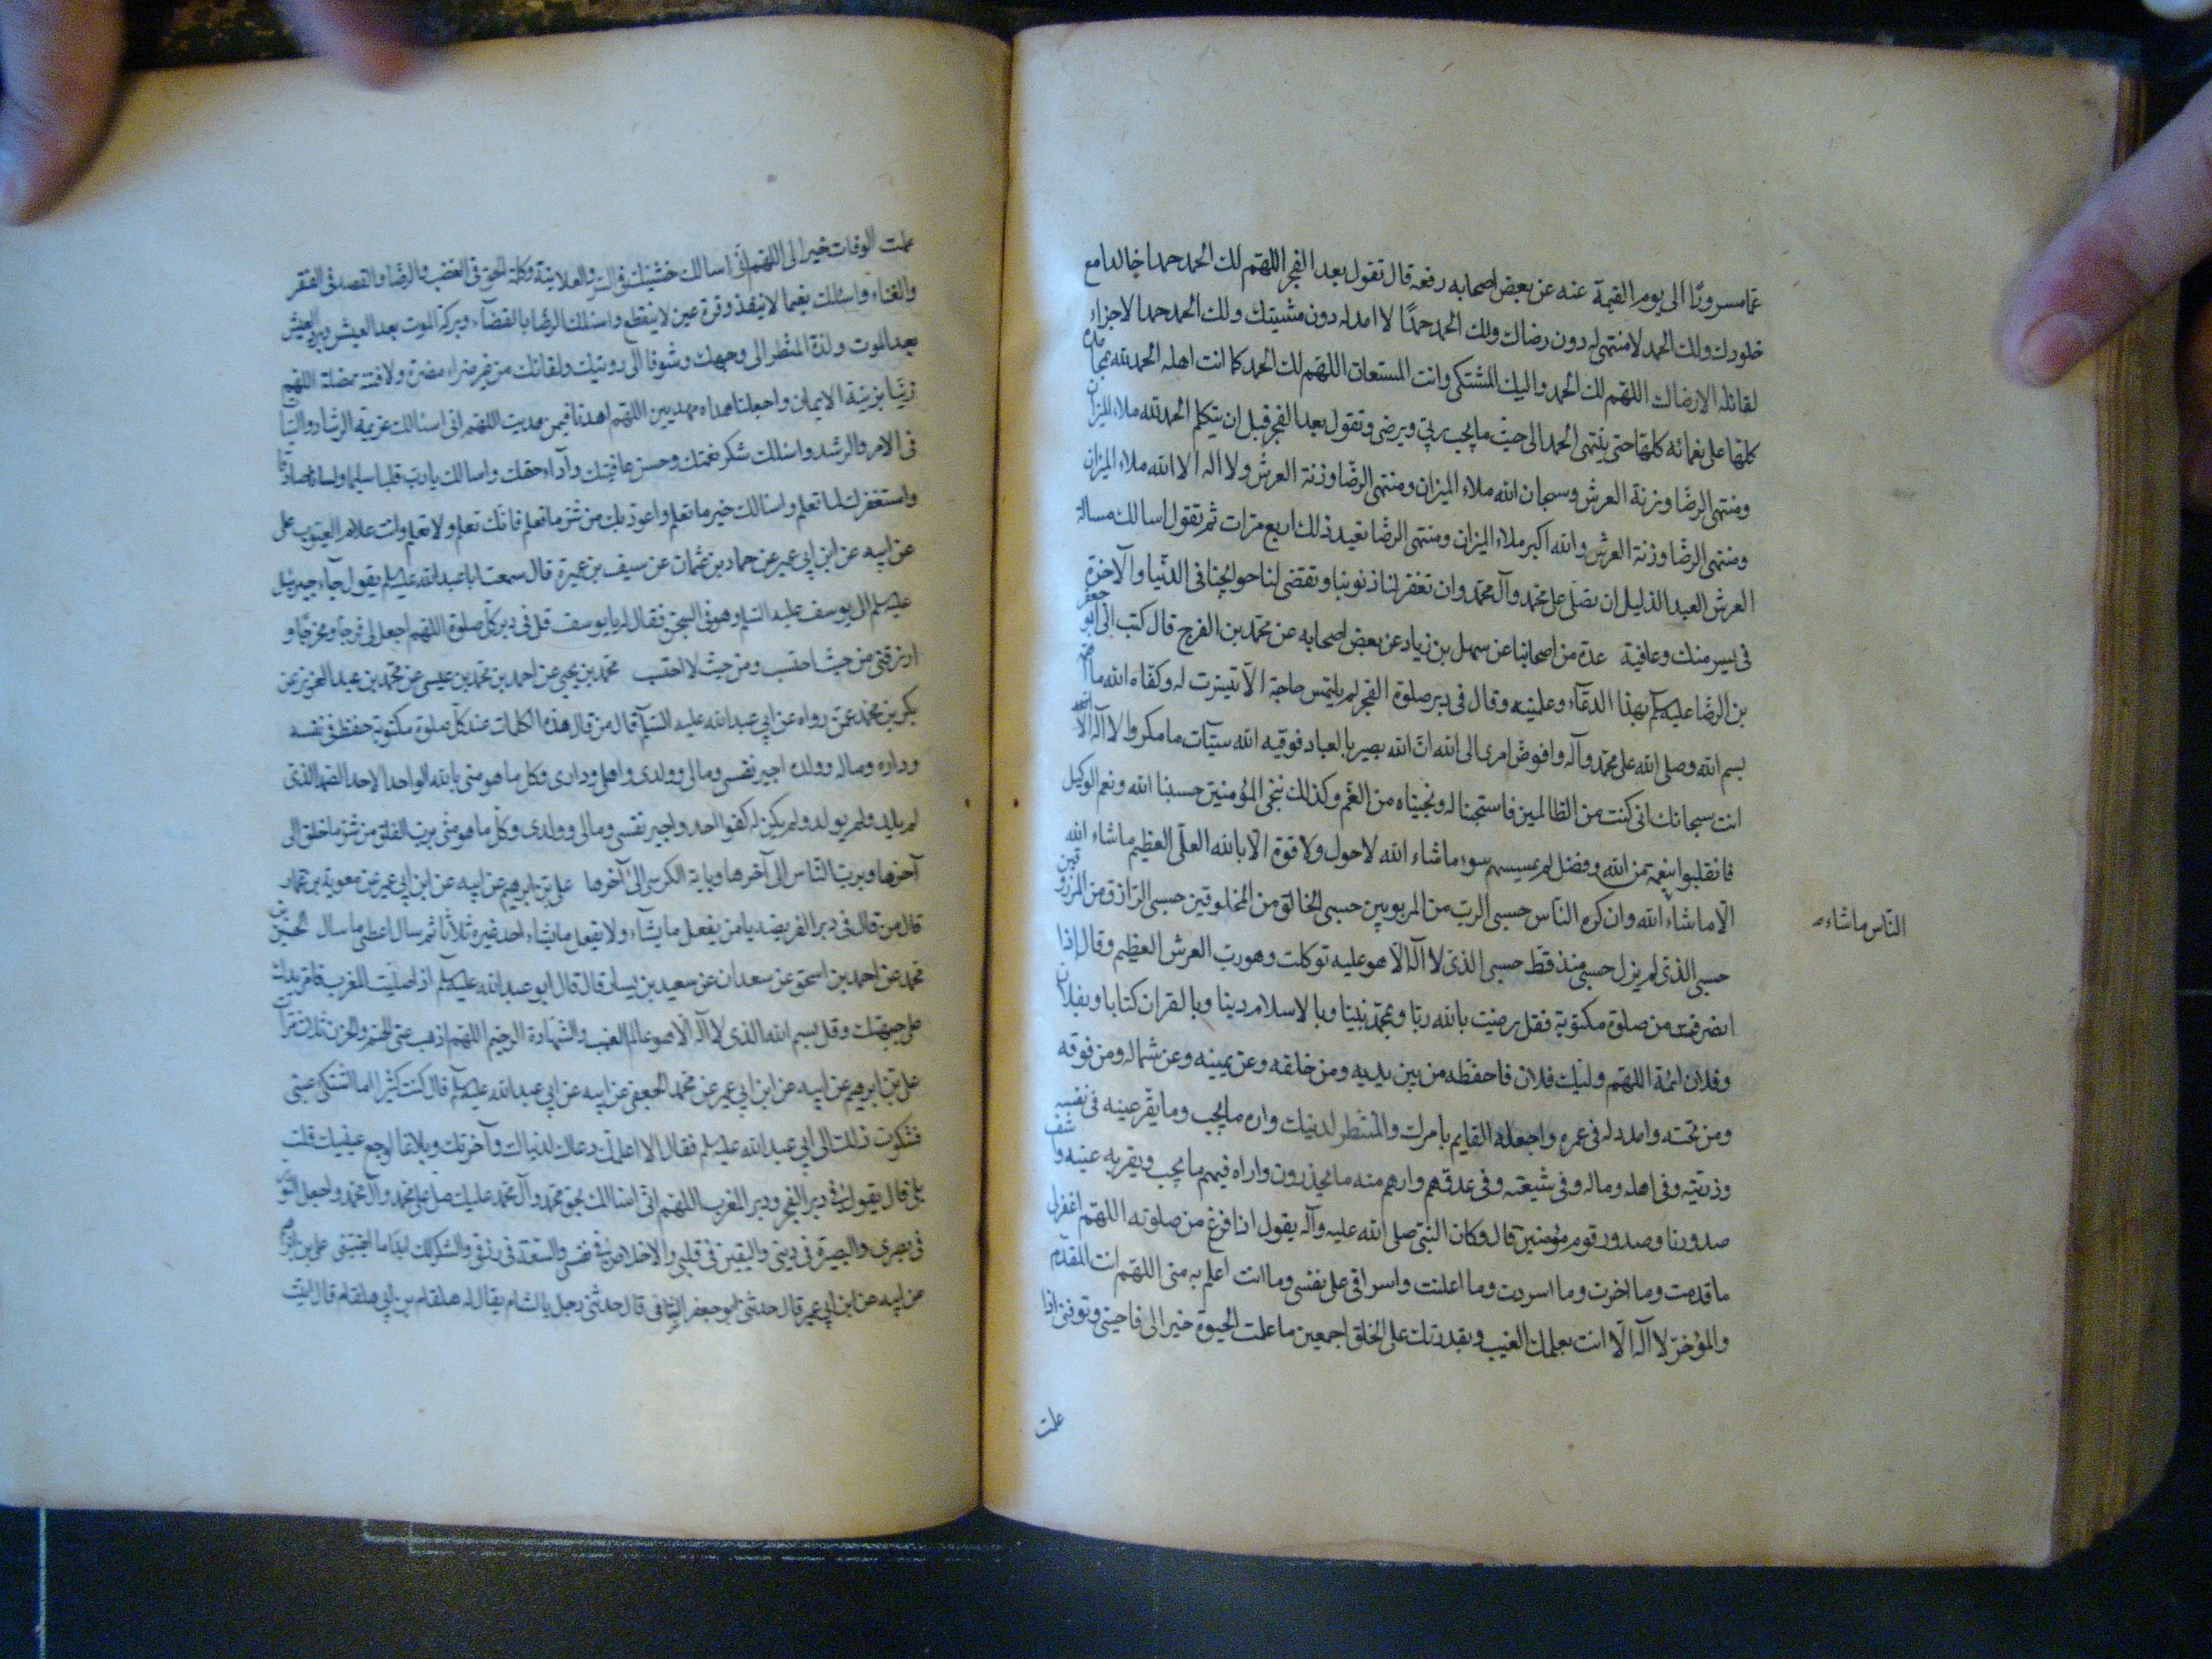 عما مسرورًا الى يوم القيمة عنه عن بعض اصحابه رفعه قال تقول بعد الفجر اللهم لك الحمد حمدا خالدا مع
خلودك ولك الحمد لا منتهى له دون رضاك ولك الحمد حمدًا لا امد له دون مشيتك ولك الحمد حمدا لا جزاء
لقائله الا رضاك اللهم لك الحمد واليك المشتكى وانت المستعان اللهم لك الحمد كما انت اهله الحمد لله بمحامده
كلها على نعمائه كلها حتى ينتهى الحمد الى حيث ما يحب ربى ويرضى وتقول بعد الفجر قبل ان يتكلم الحمد لله ملاء الميزان
ومنتهى الرضا وزنة العرش وسبحان الله ملاء الميزان ومنتهى الرضا وزنة العرش ولا اله الا الله ملاء الميزان
ومنتهى الرضا وزنة العرش والله اكبر ملاء الميزان ومنتهى الرضا تعيد ذلك اربع مرات ثم تقول اسالك مسالة
العرش العبد الذليل ان تصلى على محمد وآل محمد وان تغفر لنا ذنوبنا وتقضى لنا حوائجنا فى الدنيا والآخرة
فى يسر منك وعافية عدة من اصحابنا عن سهل بن زياد عن بعض اصحابه عن محمد بن الفرج قال كتب الى ابو جعفر
بن الرضا عليه السلم بهذا الدعاء وعلمنيه وقال فى دبر صلوة الفجر لم يلتمس حاجة الا تيسرت له وكفاه الله ما اهمه
بسم الله وصلى الله على محمد وآله وافوض امرى الى الله ان الله بصير بالعباد فوقيه الله سيئات ما مكروا لا اله الا
انت سبحانك انى كنت من الظالمين فاستجبنا له ونجيناه من الغم وكذلك ننجى المؤمنين حسبنا الله ونعم الوكيل
فانقلبوا بنعمة من الله وفضل لم يمسسهم سوء ما شاء الله لا حول ولا قوة الا بالله العلى العظيم ما شاء الله
الا ما شاء الله وان كره الناس حسبى الرب من المربوبين حسبى الخالق من المخلوقين حسبى الرازق من المرزوقين
الناس ما شاء
حسبى الذى لم يزل حسبى منذ قط حسبى الذى لا اله الا هو عليه توكلت وهو رب العرش العظيم وقال اذا
انصرفت من صلوة مكتوبة فقل رضيت بالله ربا وبمحمد نبيا وبالاسلام دينا وبالقران كتابا وبفلان
وفلان ائمة اللهم وليك فلان فاحفظه من بين يديه ومن خلفه وعن يمينه وعن شماله ومن فوقه
ومن تحته وامدد له فى عمره واجعله القايم بامرك والمنتظر لدينك واره ما يحب وما يقر عينه فى نفسه
وذريته وفى اهله وماله وفى شيعته وفى عدوهم وارهم منه ما يحذرون واراه فيهم ما يحب ويقر به عينه واشف
صدورنا وصدور قوم مؤمنين قال وكان النبى صلى الله عليه وآله يقول اذا فرغ من صلوته اللهم اغفر لى
ما قدمت وما اخرت وما اسررت وما اعلنت واسرافى على نفسى وما انت اعلم به منى اللهم انت المقدم
والمؤخر لا اله الا انت بعلمك الغيب وبقدرتك على الخلق اجمعين ما علمت الحيوة خيرا لى فاحينى وتوفنى اذا
علمت
علمت الوفات خيرا لى اللهم انى اسالك خشيتك فى السر والعلانية وكلمة الحق فى الغضب والرضا والقصد فى الفقر
والغناء واسئلك نعيما لا ينفذ وقرة عين لا ينقطع واسئلك الرضا بالقضآء وبركة الموت بعد العيش وبرد العيش
بعد الموت ولذة المنظر الى وجهك وشوقا الى رويتك ولقائك من غير ضراء مضرة ولا فتنة مضلة اللهم
زينا بزينة الايمان واجعلنا هداه مهديين اللهم اهدنا فيمن هديت اللهم انى اسئالك عزيمة الرشاد والثبات
فى الامر والرشد واسئلك شكر نعمتك وحسن عافيتك وآداء حقك واسالك يا رب قلبا سليما ولسانا صادقا
واستغفرك لما تعلم واسالك خير ما تعلم واعوذ بك من شر ما تعلم فانك تعلم ولا نعلم وانت علام الغيوب على
عن ابيه عن ابن ابى عمير عن حماد بن عثمان عن سيف بن عميرة قال سمعت ابا عبد الله عليه السلم يقول جآء جبرئيل
عليه سلم الى يوسف عليه السلم وهو فى السجن فقال له يا يوسف قل فى دبر كل صلوة اللهم اجعل لى فرجا ومخرجًا و
ارزقنى من حيث احتسب ومن حيث لا احتسب محمد بن يحيى عن احمد بن محمد بن عيسى عن محمد بن عبد العزيز عن
بكر بن محمد عمن رواه عن ابى عبد الله عليه السلم قال من قال هذه الكلمات عند كل صلوة مكتوبة حفظ فى نفسه
وداره وماله وولده اجير نفسى ومالى وولدى واهلى ودارى وكل ما هو منى بالله الواحد الاحد الصمد الذى
لم يلد ولم يولد ولم يكن له كفوا احد واجير نفسى ومالى وولدى وكل ما هو منى برب الفلق من شر ما خلق الى
آخرها وبرب الناس الى آخرها وباية الكرسى الى آخرها على بن ابرهيم عن ابيه عن ابن ابى عمير عن معوية بن عمار
قال من قال فى دبر الفريضة يا من يفعل ما يشآء ولا يفعل ما يشاء احد غيره ثلاثا ثم سال اعطى ما سال الحسين بن
محمد عن احمد بن اسحق عن سعدان عن سعيد بن يسار قال قال ابو عبد الله عليه السلم اذا صليت المغرب فامر يدك
على جبهتك وقل بسم الله الذى لا اله الا هو عالم الغيب والشهادة الرحيم اللهم اذهب عنى الهم والحزن ثلاث مرات
على بن ابرهيم عن ابيه عن ابن ابى عمير عن محمد الجعفى عن ابيه عن ابى عبد الله عليه السلم قال كنت كثيرا ما اشتكى عينى
فشكوت ذلك الى ابى عبد الله عليه سلم فقال الا اعلمك دعاء لدنياك وآخرتك وبلاغا لوجع عينيك قلت
بلى قال يقول فى دبر الفجر ودبر المغرب اللهم انى اسئالك بحق محمد وآل محمد عليك صل على محمد وآل محمد واجعل النور
فى بصرى والبصيرة فى دينى واليقين فى قلبى والاخلاص فى نفسى والسعة فى رزقى والشكر لك ابدا ما ابقيتنى على بن ابرهيم
عن ابيه عن ابن ابى عمير قال حدثنى ابو جعفر الشافى قال حدثنى رجل بالشام يقال له هلقام بن ابى هلقام قال اتيت